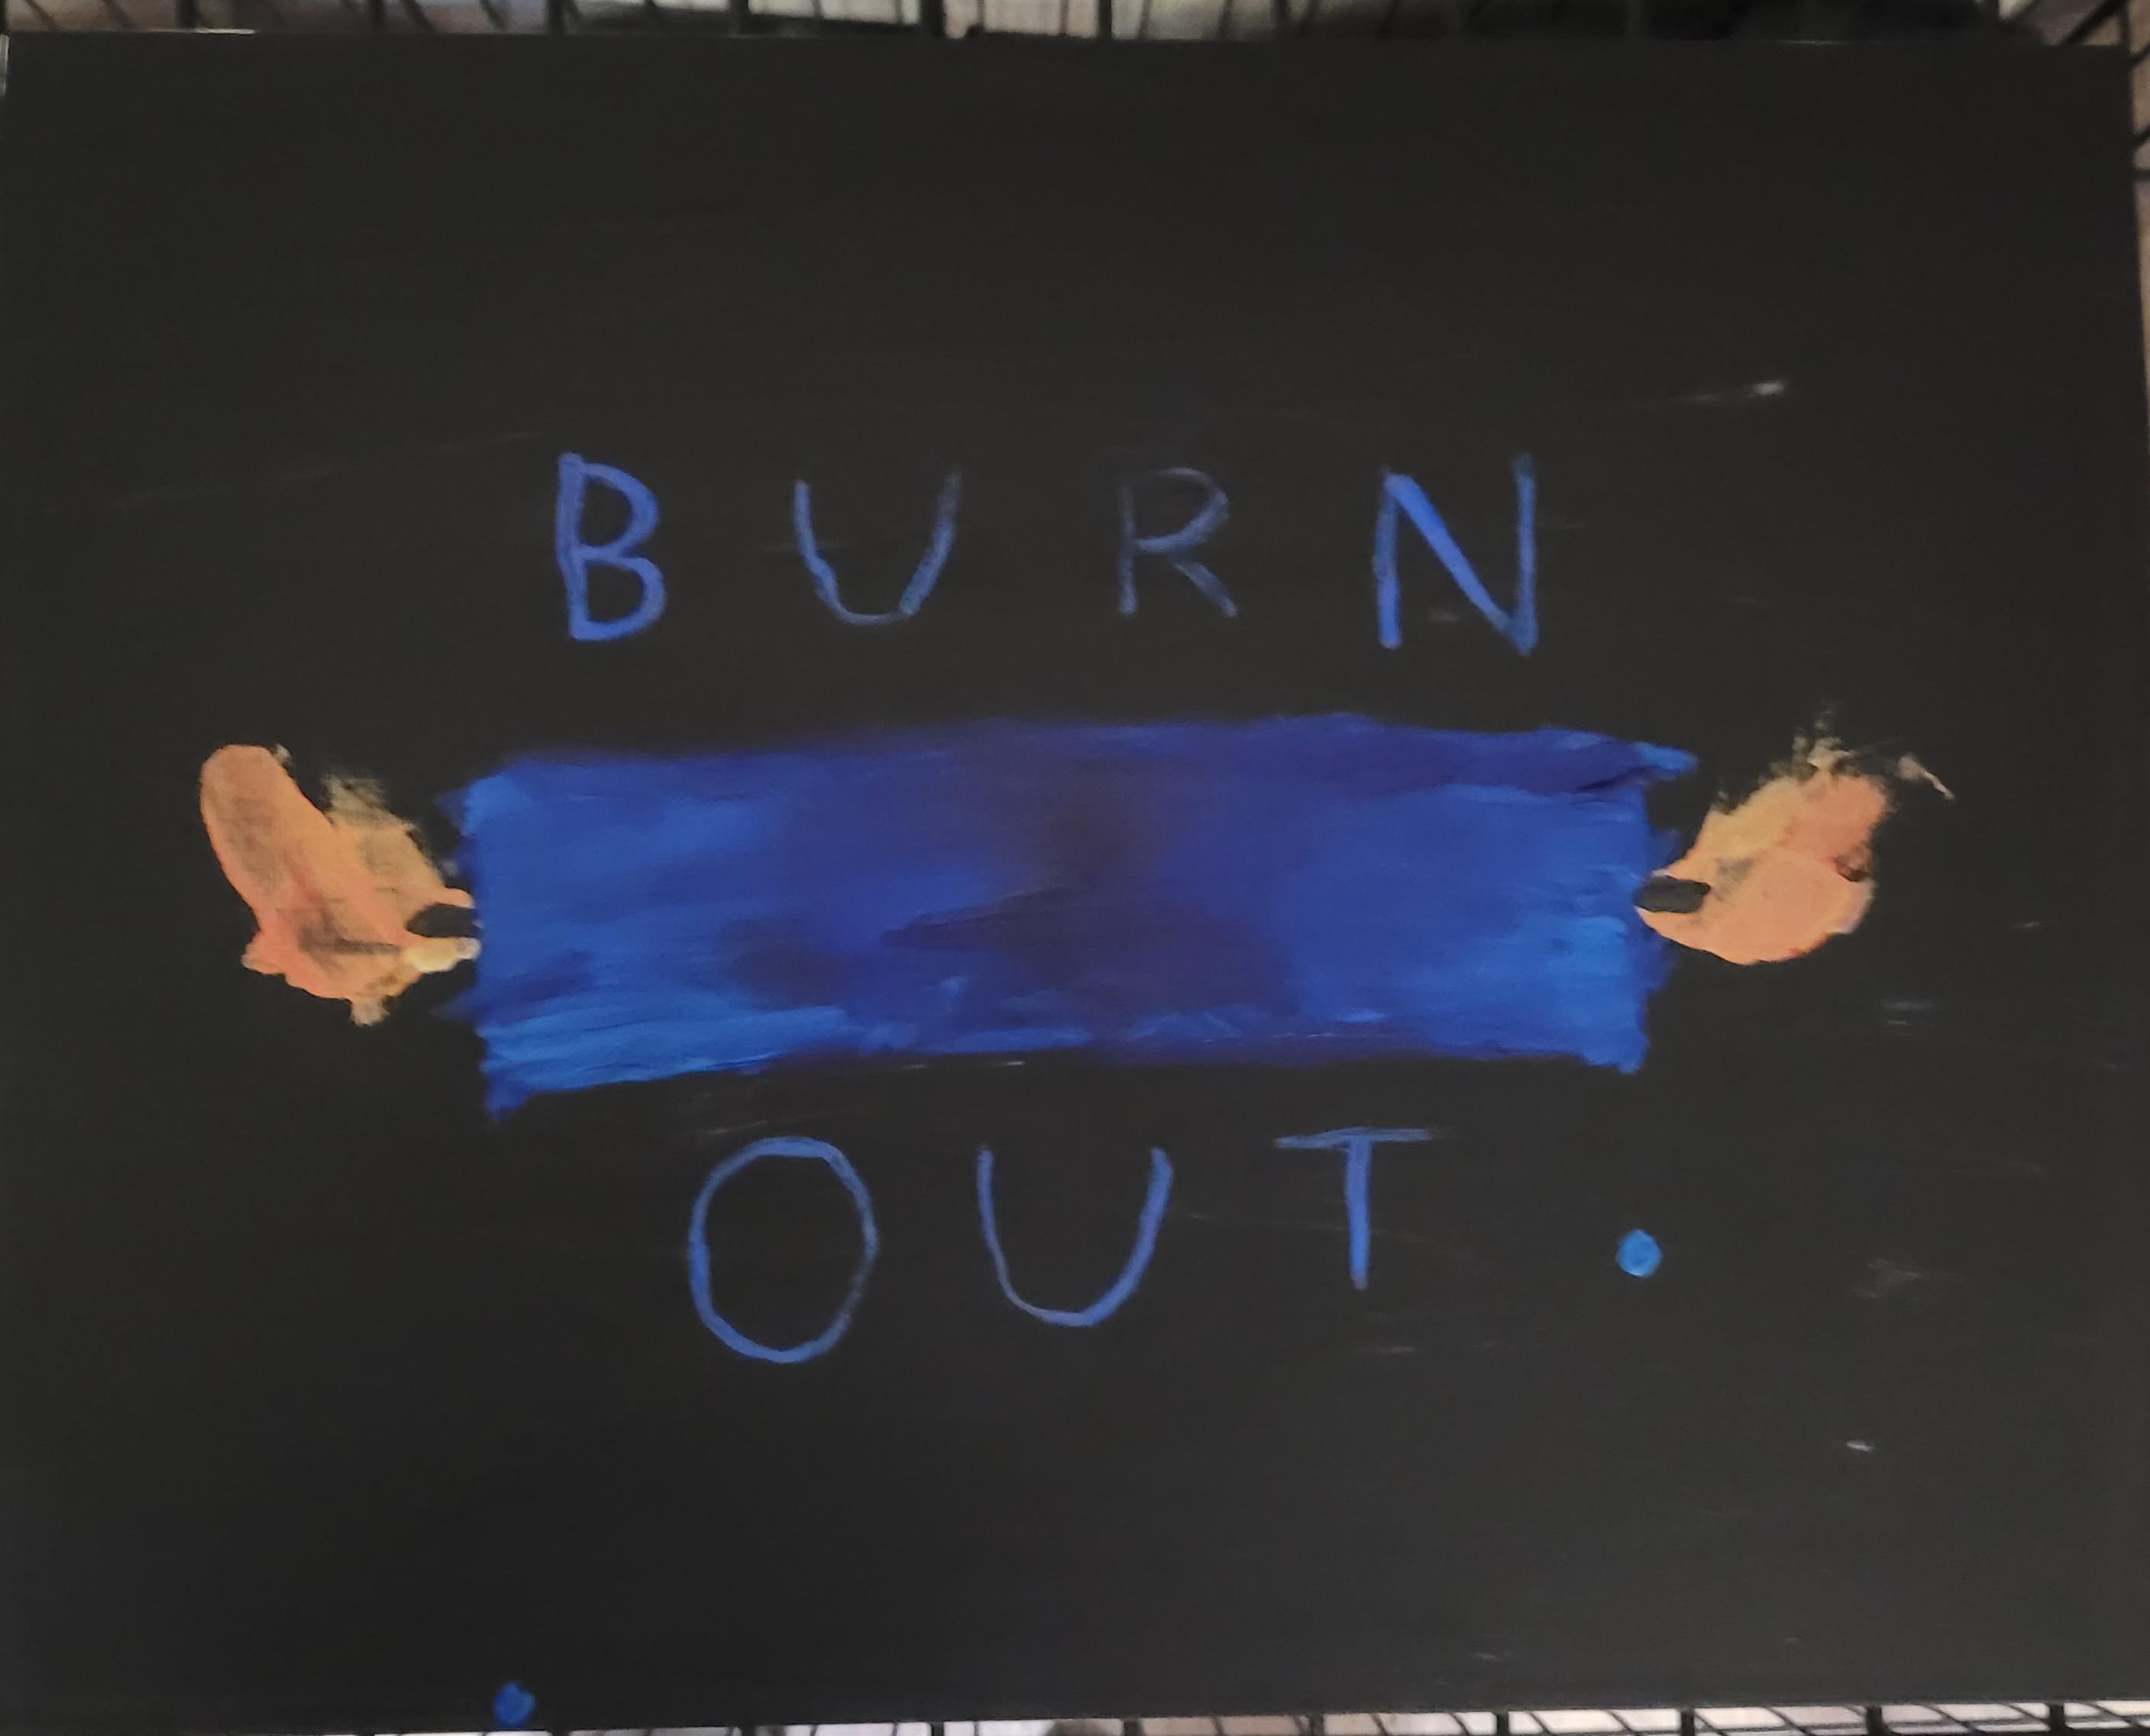 BURN
OUT.